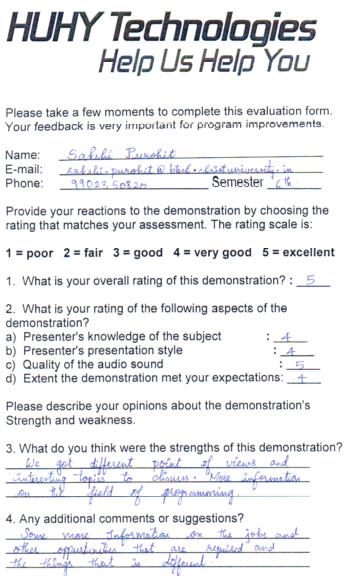 HUHY Technologies
Help Us Help You
Please take a few moments to complete this evaluation form.
Your feedback is very important for program improvements.
Name: Sakshi Purohit
E-mail: sakshi.purohit@btech.christuniversity.in
Phone: Semester 6th
Provide your reactions to the demonstration by choosing the
rating that matches your assessment. The rating scale is:
1 = poor 2 = fair 3 = good 4 = very good 5 = excellent
1. What is your overall rating of this demonstration? : 5
2. What is your rating of the following aspects of the
demonstration?
a) Presenter's knowledge of the subject : 4
b) Presenter's presentation style : 4
c) Quality of the audio sound : 5
d) Extent the demonstration met your expectations: 4
Please describe your opinions about the demonstration's
Strength and weakness.
3. What do you think were the strengths of this demonstration?
We got different point of views and
interesting topics to discuss. More information
on the field of programming.
4. Any additional comments or suggestions?
Some more Information on the jobs and
other oppurtunities that are required and
the things that is different.